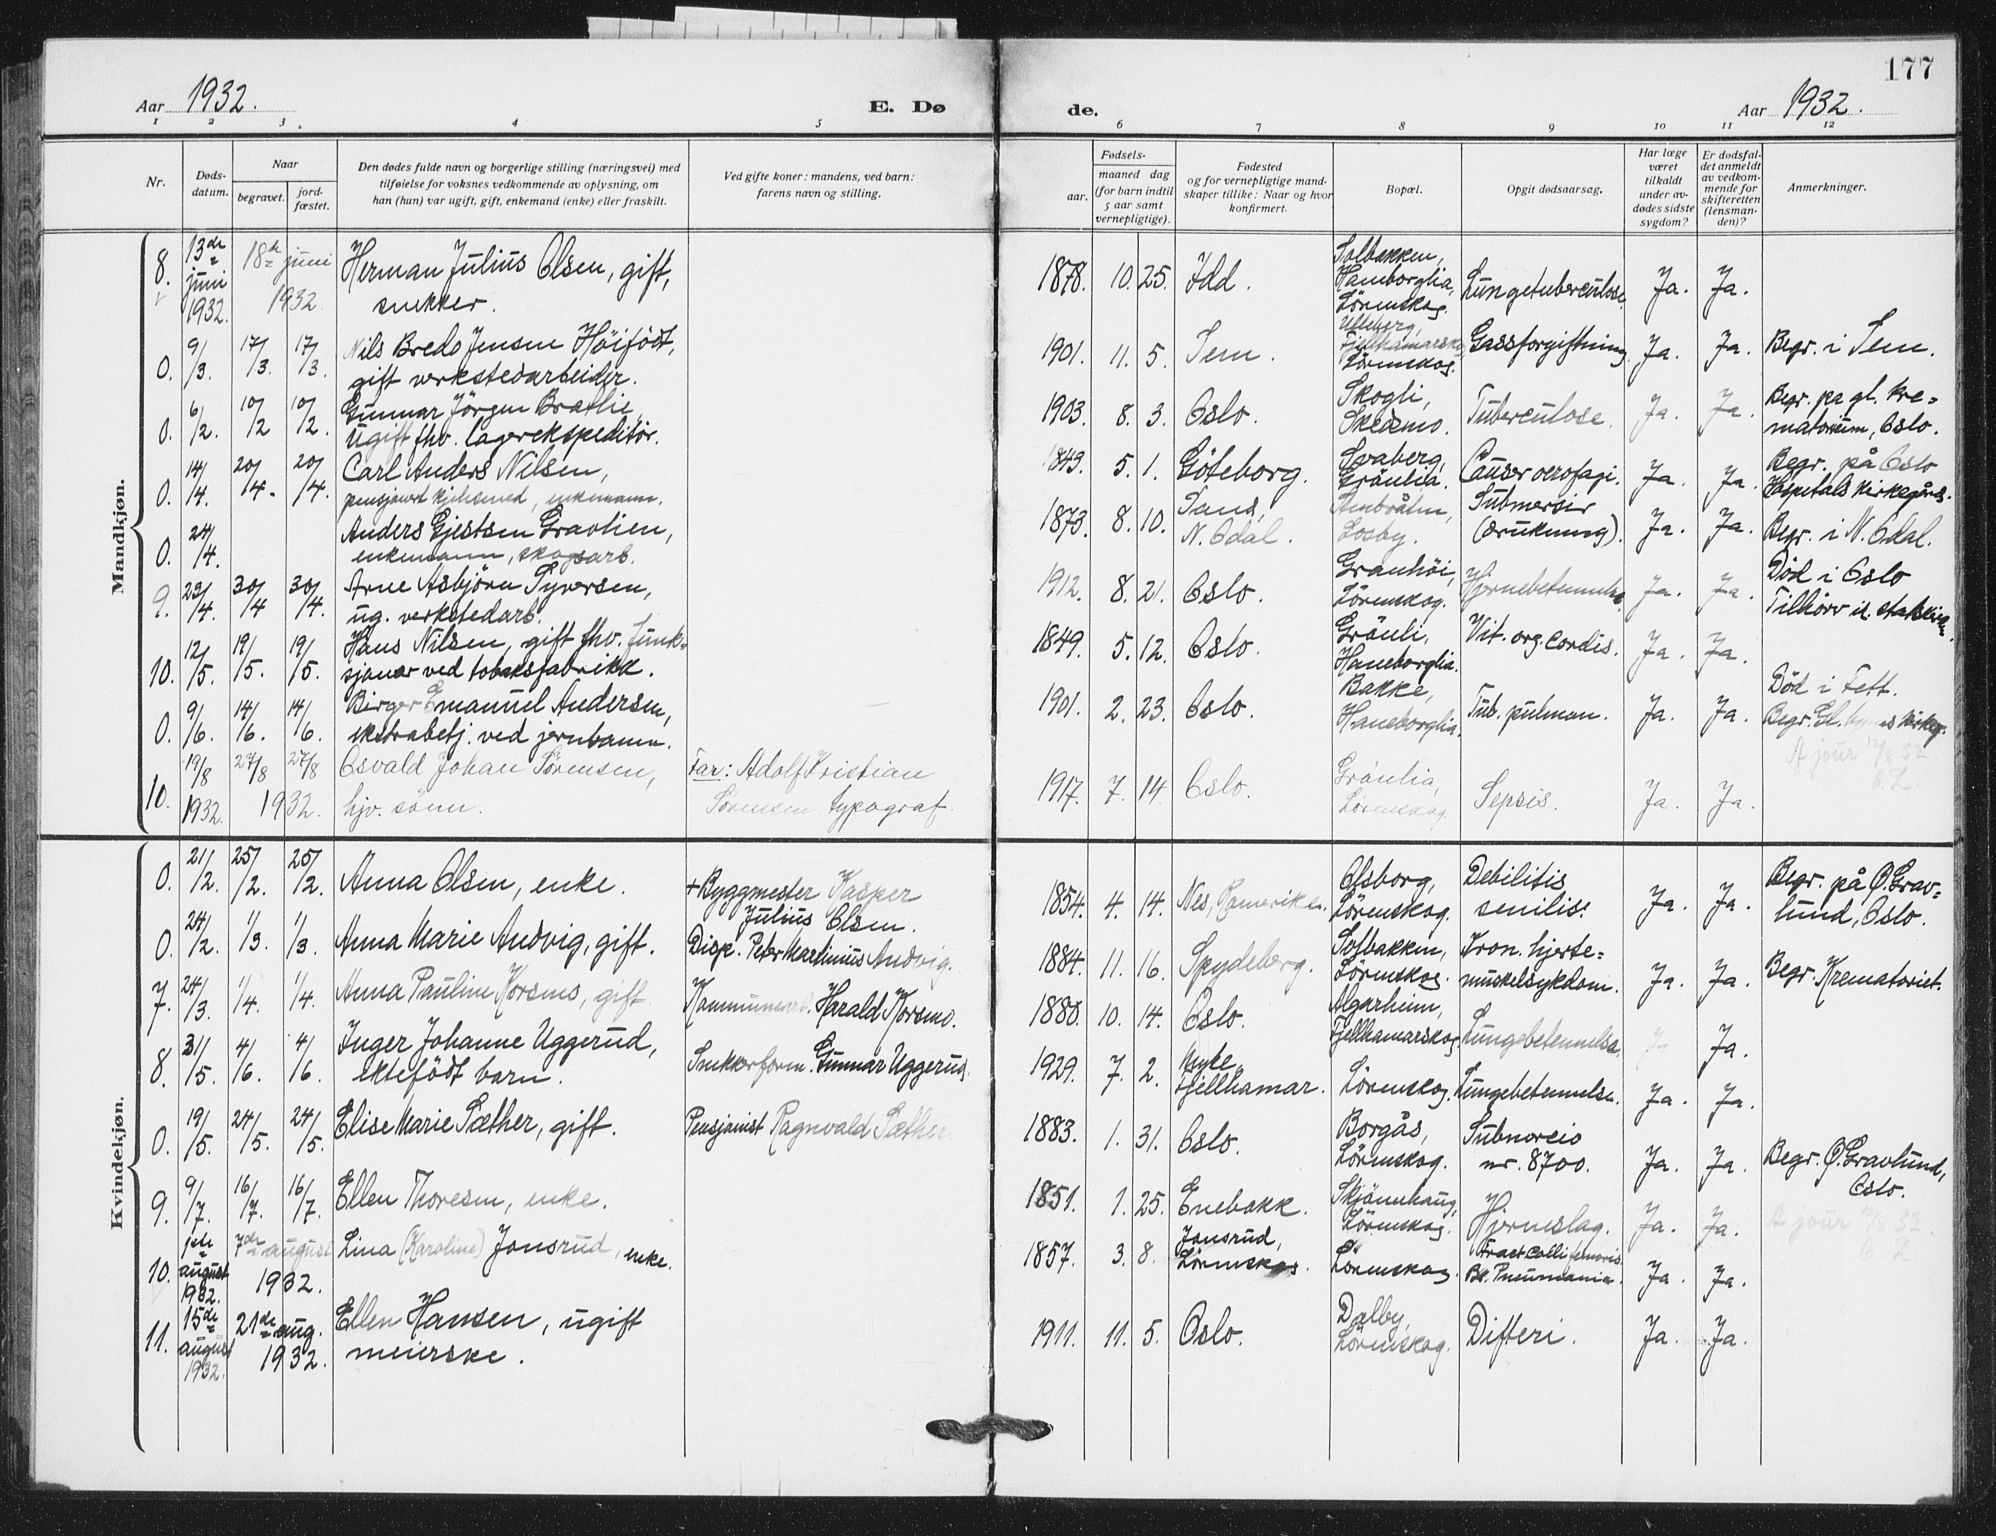 177
Aar 1932.
E. Dø
de.
Aar 1932.
1 2 3 4 5 6 7 8 9 10 11 12
Nr.
Døds-
datum.
Naar
begravet.
jord-
fæstet.
Den dødes fulde navn og borgerlige stilling (næringsvei) med
tilføielse for voksnes vedkommende av oplysning, om
han (hun) var ugift, gift, enkemand (enke) eller fraskilt.
Ved gifte koner: mandens, ved barn:
farens navn og stilling.
Fødsels-
aar.
maaned dag
(for barn indtil
5 aar samt
vernepligtige).
Fødested
og for vernepligtige mand-
skaper tillike: Naar og hvor
konfirmert.
Bopæl.
Opgit dødsaarsag.
Har læge
været
tilkaldt
under av-
dødes sidste
sygdom?
Er dødsfal-
det anmeldt
av vedkom-
mende for
skifteretten
(lensman-
den)?
Anmerkninger.
Mandkjøn.
8. 13de juni 1932. 18de juni 1932. Herman Julius Olsen, gift,
snekker.
1878. 10. 25. Idd. Solbakken, Hamborglia, Lörenskog. Lungetuberculose. Ja. Ja.
0. 9/3. 17/3. 17/3. Nils Bredo Jensen Höifödt,
gift verkstedarbeider.
1901. 11. 5. Sem. Fjellhamarskog, Lörenskog. Gassforgiftning Ja. Ja. Begr. i Sem.
0. 6/2. 10/2 10/2. Gunnar Jörgen Bratlie,
ugift fhv. lagerekspeditör.
1903. 8. 3. Oslo. Skogli, Skedsmo. Tuberculose. Ja. Ja. Begr. pa gl. kre-
matorium, Oslo.
0. 14/4. 20/4. 20/4. Carl Anders Nilsen,
pensjonert enkemann.
1849. 5. 1. Göteborg. Svaberg, Gränlia. Cancer oesofagi. Ja. Ja. Begr. på Oslo
Hospitals kirkegård.
0. 24/4. Anders Gjestsen Gravlien,
enkemann, skogsarb.
1873. 8. 10. Sand, N. Odal. Losby. Submersir
(drukning). Ja. Ja. Begr. i N. Odal.
9. 23/4. 30/4 30/4. Arne Asbjörn Syversen,
ug. verkstedarb.
1912. 8. 21. Oslo. Granhöi, Lörenskog. Hjernebetennelse Ja. Ja. Död i Oslo
Tilhörv
10. 12/5. 19/5. 19/5. Hans Nilsen, gift fhv. funk-
sjonær ved tobaksfabrikk.
1849. 5. 12. Oslo. Grönli, Haneborglia. Vit. org. cordis. Ja. Ja.
0. 9/6. 14/6. 14/6. Birger Emanuel Andersen,
ekstrabetj. ved jernbanen.
1901. 2. 23. Oslo. Bakke, Haneborglia. Tub. pulmon. Ja. Ja. Död i Fett.
Begr. Gl.
A jour 12/8 32.
10. 19/8 1932. 27/8 27/8 1932. Osvald Johan Sörensen,
hjv. sönn.
Far: Adolf Kristian
Sörensen, typograf.
1917. 7. 14. Oslo. Grönlia, Lörenskog. Sepsis. Ja. Ja.
Kvindekjøn.
0. 21/2. 25/2. 25/2. Anna Olsen, enke.
+ Byggmester Kasper
Julius Olsen.
1854. 4. 14. Nes, Romerike. Olsborg, Lörenskog. Debilitis
senilis. Ja. Ja. Begr. på Ø. Grav-
lund, Oslo.
0. 24/2. 1/3. 1/3. Anna Marie Andvig, gift.
Disp. Peter Martinius Andvig.
1884. 11. 16. Spydeberg. Solbakken, Lörenskog. Kron. hjerte-
muskelsykdom. Ja. Ja. Begr. Krematoriet.
7. 24/3. 1/4. 1/4. Anna Pauline Korsmo, gift.
Kommunearb. Harald Korsmo.
1880. 10. 14. Oslo. Algarheim, Fjellhamarskog. Lungebetennelse. Ja. Ja.
8. 31/5. 4/6. 4/6. Inger Johanne Uggerud,
ektefödt barn.
Snekkerform. Gunnar Uggerud.
1929. 7. 2. Fjellhamar. Lörenskog. Lungebetennelse. Ja. Ja.
0. 19/5. 24/5. 24/5. Elise Marie Sæther, gift.
Pensjonist Ragnvald Sæther.
1883. 1. 31. Oslo. Borgås, Lörenskog.
nr. 8700. Ja. Ja. Begr. Ø. Gravlund,
Oslo.
9. 9/7. 16/7. 16/7. Ellen Thoresen, enke.
1851. 1. 25. Enebakk. Skjönnhaug, Lörenskog. Hjerneslag. Ja. Ja. A jour 12/8 32
10. 1ste august 1932. 7de august 1932. Lina (Karoline) Jonsrud, enke.
1857. 3. 8. Jonsrud, Lörenskog. Lörenskog. Fract. colli femoris.
Br. Pneumonia. Ja. Ja.
11. 15de august 1932. 21de aug. 1932. Ellen Hansen, ugift
meierske.
1911. 11. 5. Oslo. Dalby, Lörenskog. Difteri. Ja. Ja.